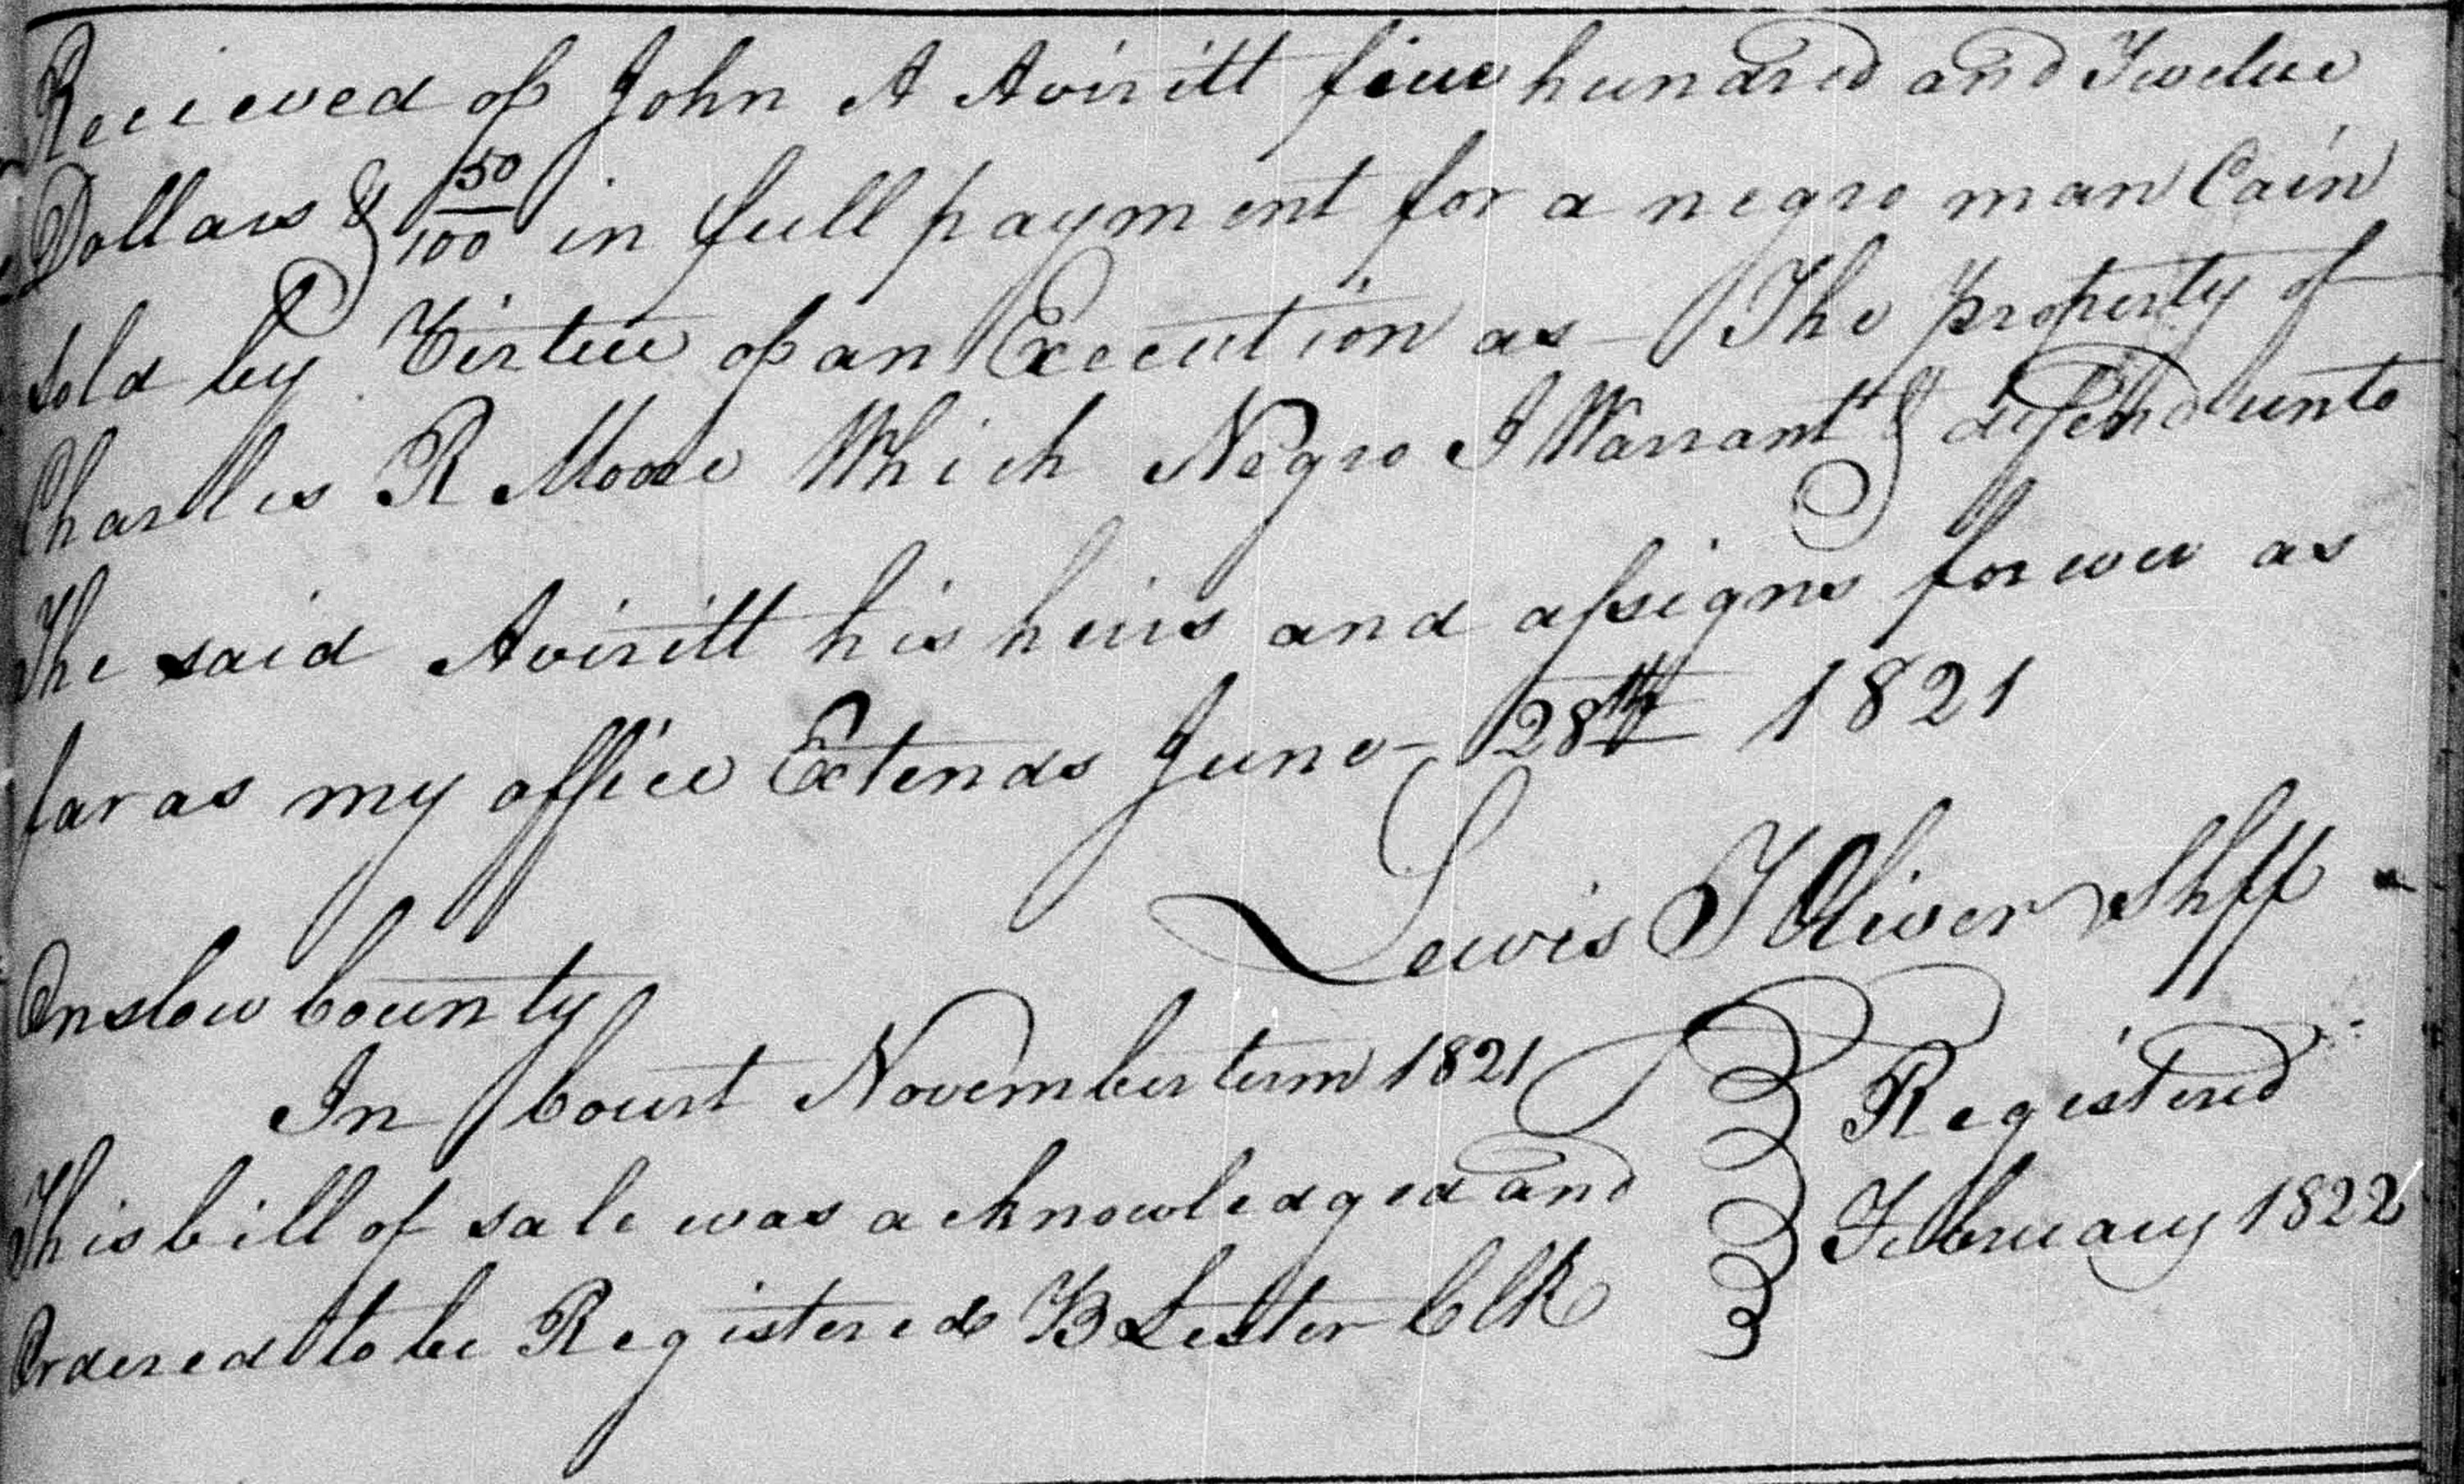 Receieved of John A Aviritt five hundred and Twelve
Dollars & 50/100 in full payment for a negro man Cain
sold by Virtue of an Execution as The property of
Charles R Moore Which Negro I Warrant & defend unto
The said Aviritt his heirs and assigns forever as
far as my office Extends June 28th 1821
Lewis T Oliver Shff
Onslow County
In Court November term 1821
This bill of sale was acknowledged and
Ordered to be Registered B Lester Clk
Registered
February 1822